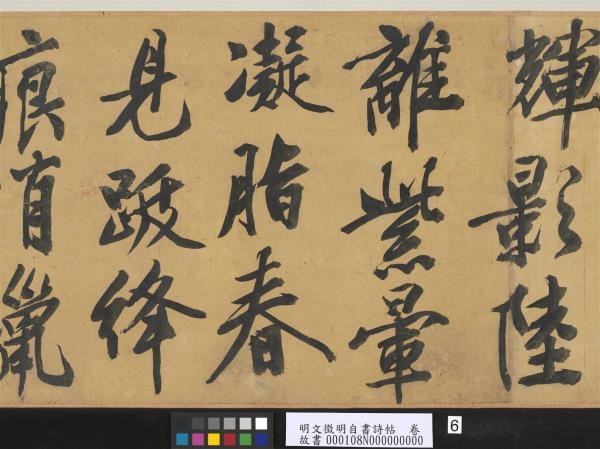 輝影陸
離紫暈
凝脂春
見跋絳
痕
明文徵明自書詩帖 卷
故書000108N000000000
6